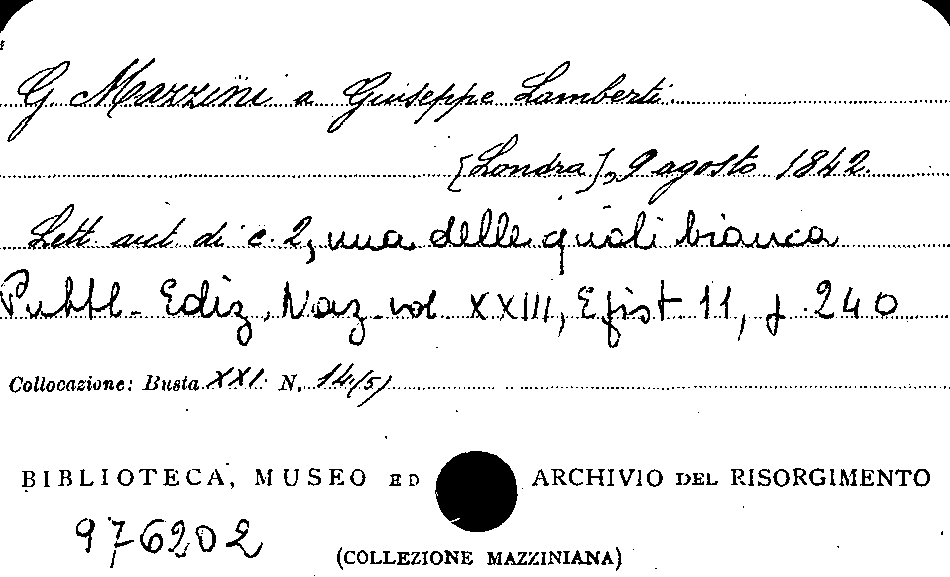 G. Mazzini a Giuseppe Lamberti.
[Londra], 9 agosto 1842.
Lett. aut. di c. 2, una delle quali bianca
Pubbl. Ediz. Naz. vol. XXIII, Epist. 11, p. 240
Collocazione: Busta XXI. N. 14/5)
BIBLIOTECA, MUSEO ED ARCHIVIO DEL RISORGIMENTO
976202
(COLLEZIONE MAZZINIANA)